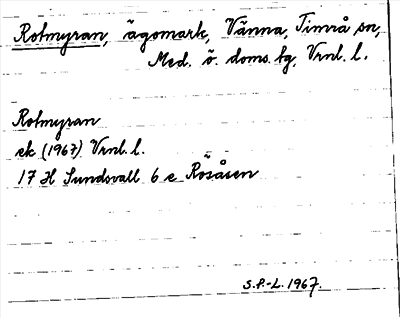 Rotmyran, ägomark, Vänna, Timrå sn,
Med. ö. doms. fg, Vrnl. l.
Rotmyran
ek (1967) Vrnl. l.
17 H Sundsvall 6 e Rösåsen
S.F.-L. 1967.